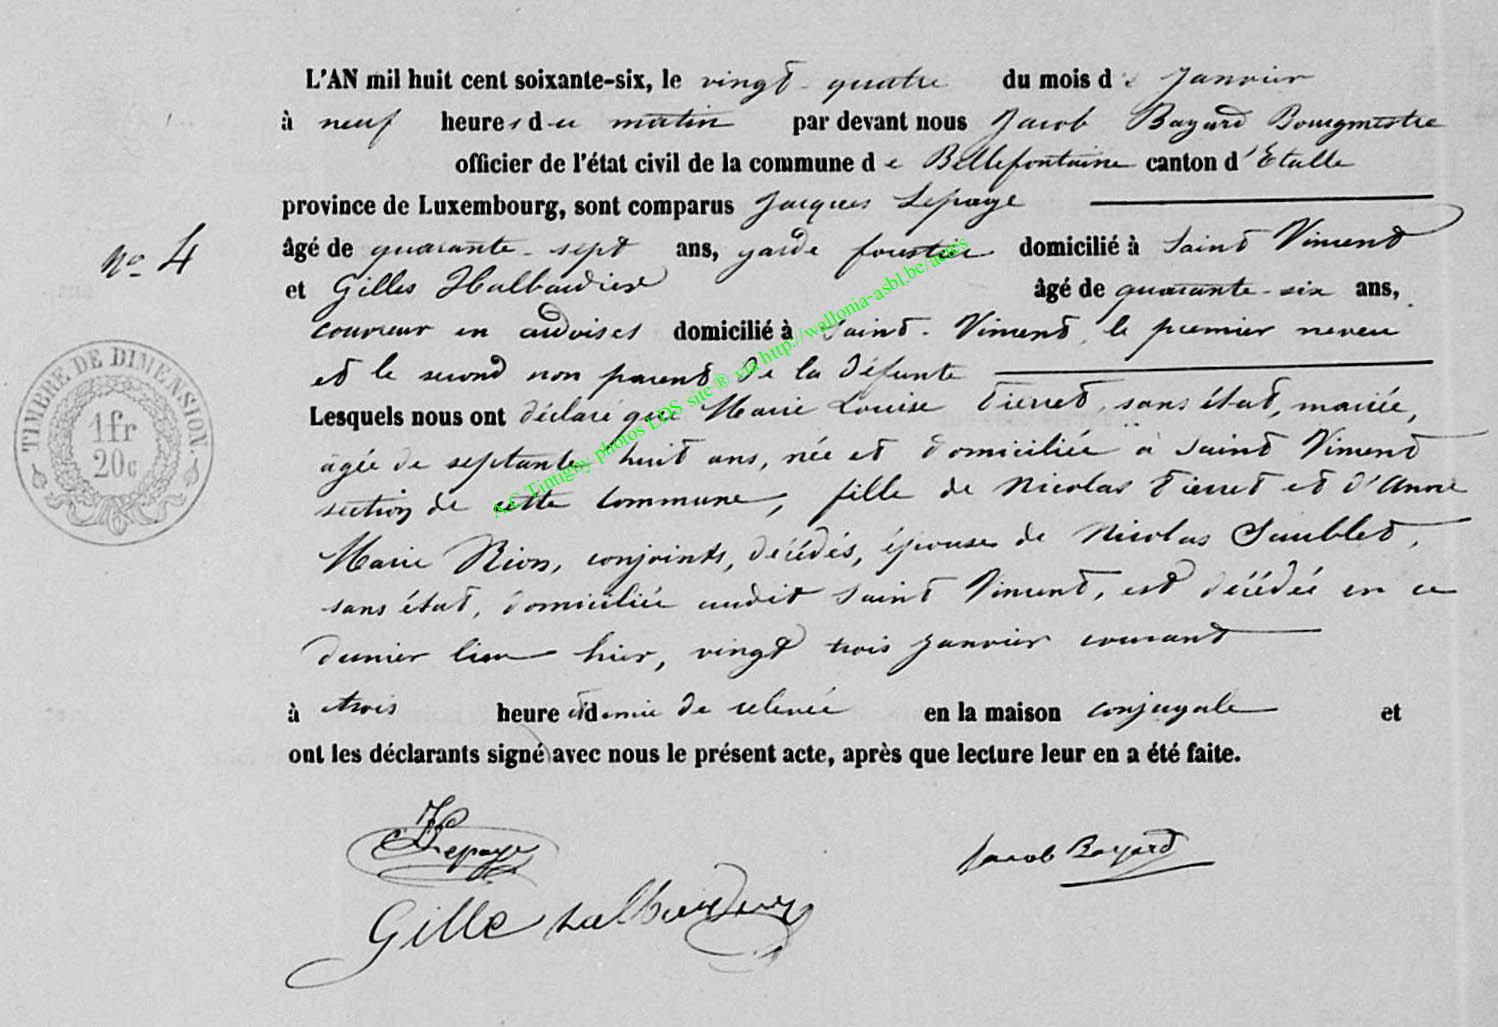 L'AN mil huit cent soixante-six, le vingt-quatre du mois de Janvier
à neuf heures du matin par devant nous Jacob Bayard Bourgmestre
officier de l'état civil de la commune de Bellefontaine canton d'Etalle
province de Luxembourg, sont comparus Jacques Lepage
âgé de quarante-sept ans, garde forestier domicilié à Saint Vincent
No 4
et Gilles Halbardier âgé de quarante-six ans,
couvreur en ardoises domicilié à Saint-Vincent, le premier neveu
et le second non parent de la défunte
Lesquels nous ont déclaré que Marie Louise Pierret, sans état, mariée,
agée de septante-huit ans, née et domiciliée à Saint Vincent
section de cette commune, fille de Nicolas Pierret et d'Anne
Marie Rion, conjoints, décédés, épouse de Nicolas Saublet,
sans état, domiciliée audit Saint Vincent, est décédée en ce
dernier lieu hier, vingt trois janvier courant
à trois heure et demie de relevée en la maison conjugale et
ont les déclarants signé avec nous le présent acte, après que lecture leur en a été faite.
TIMBRE DE DIMENSION.
1fr
20c
JLepage
Jacob Bayard
Gille halbardier
AC Tintigny photos LDS site® via http://wallonia-asbl.be/actes